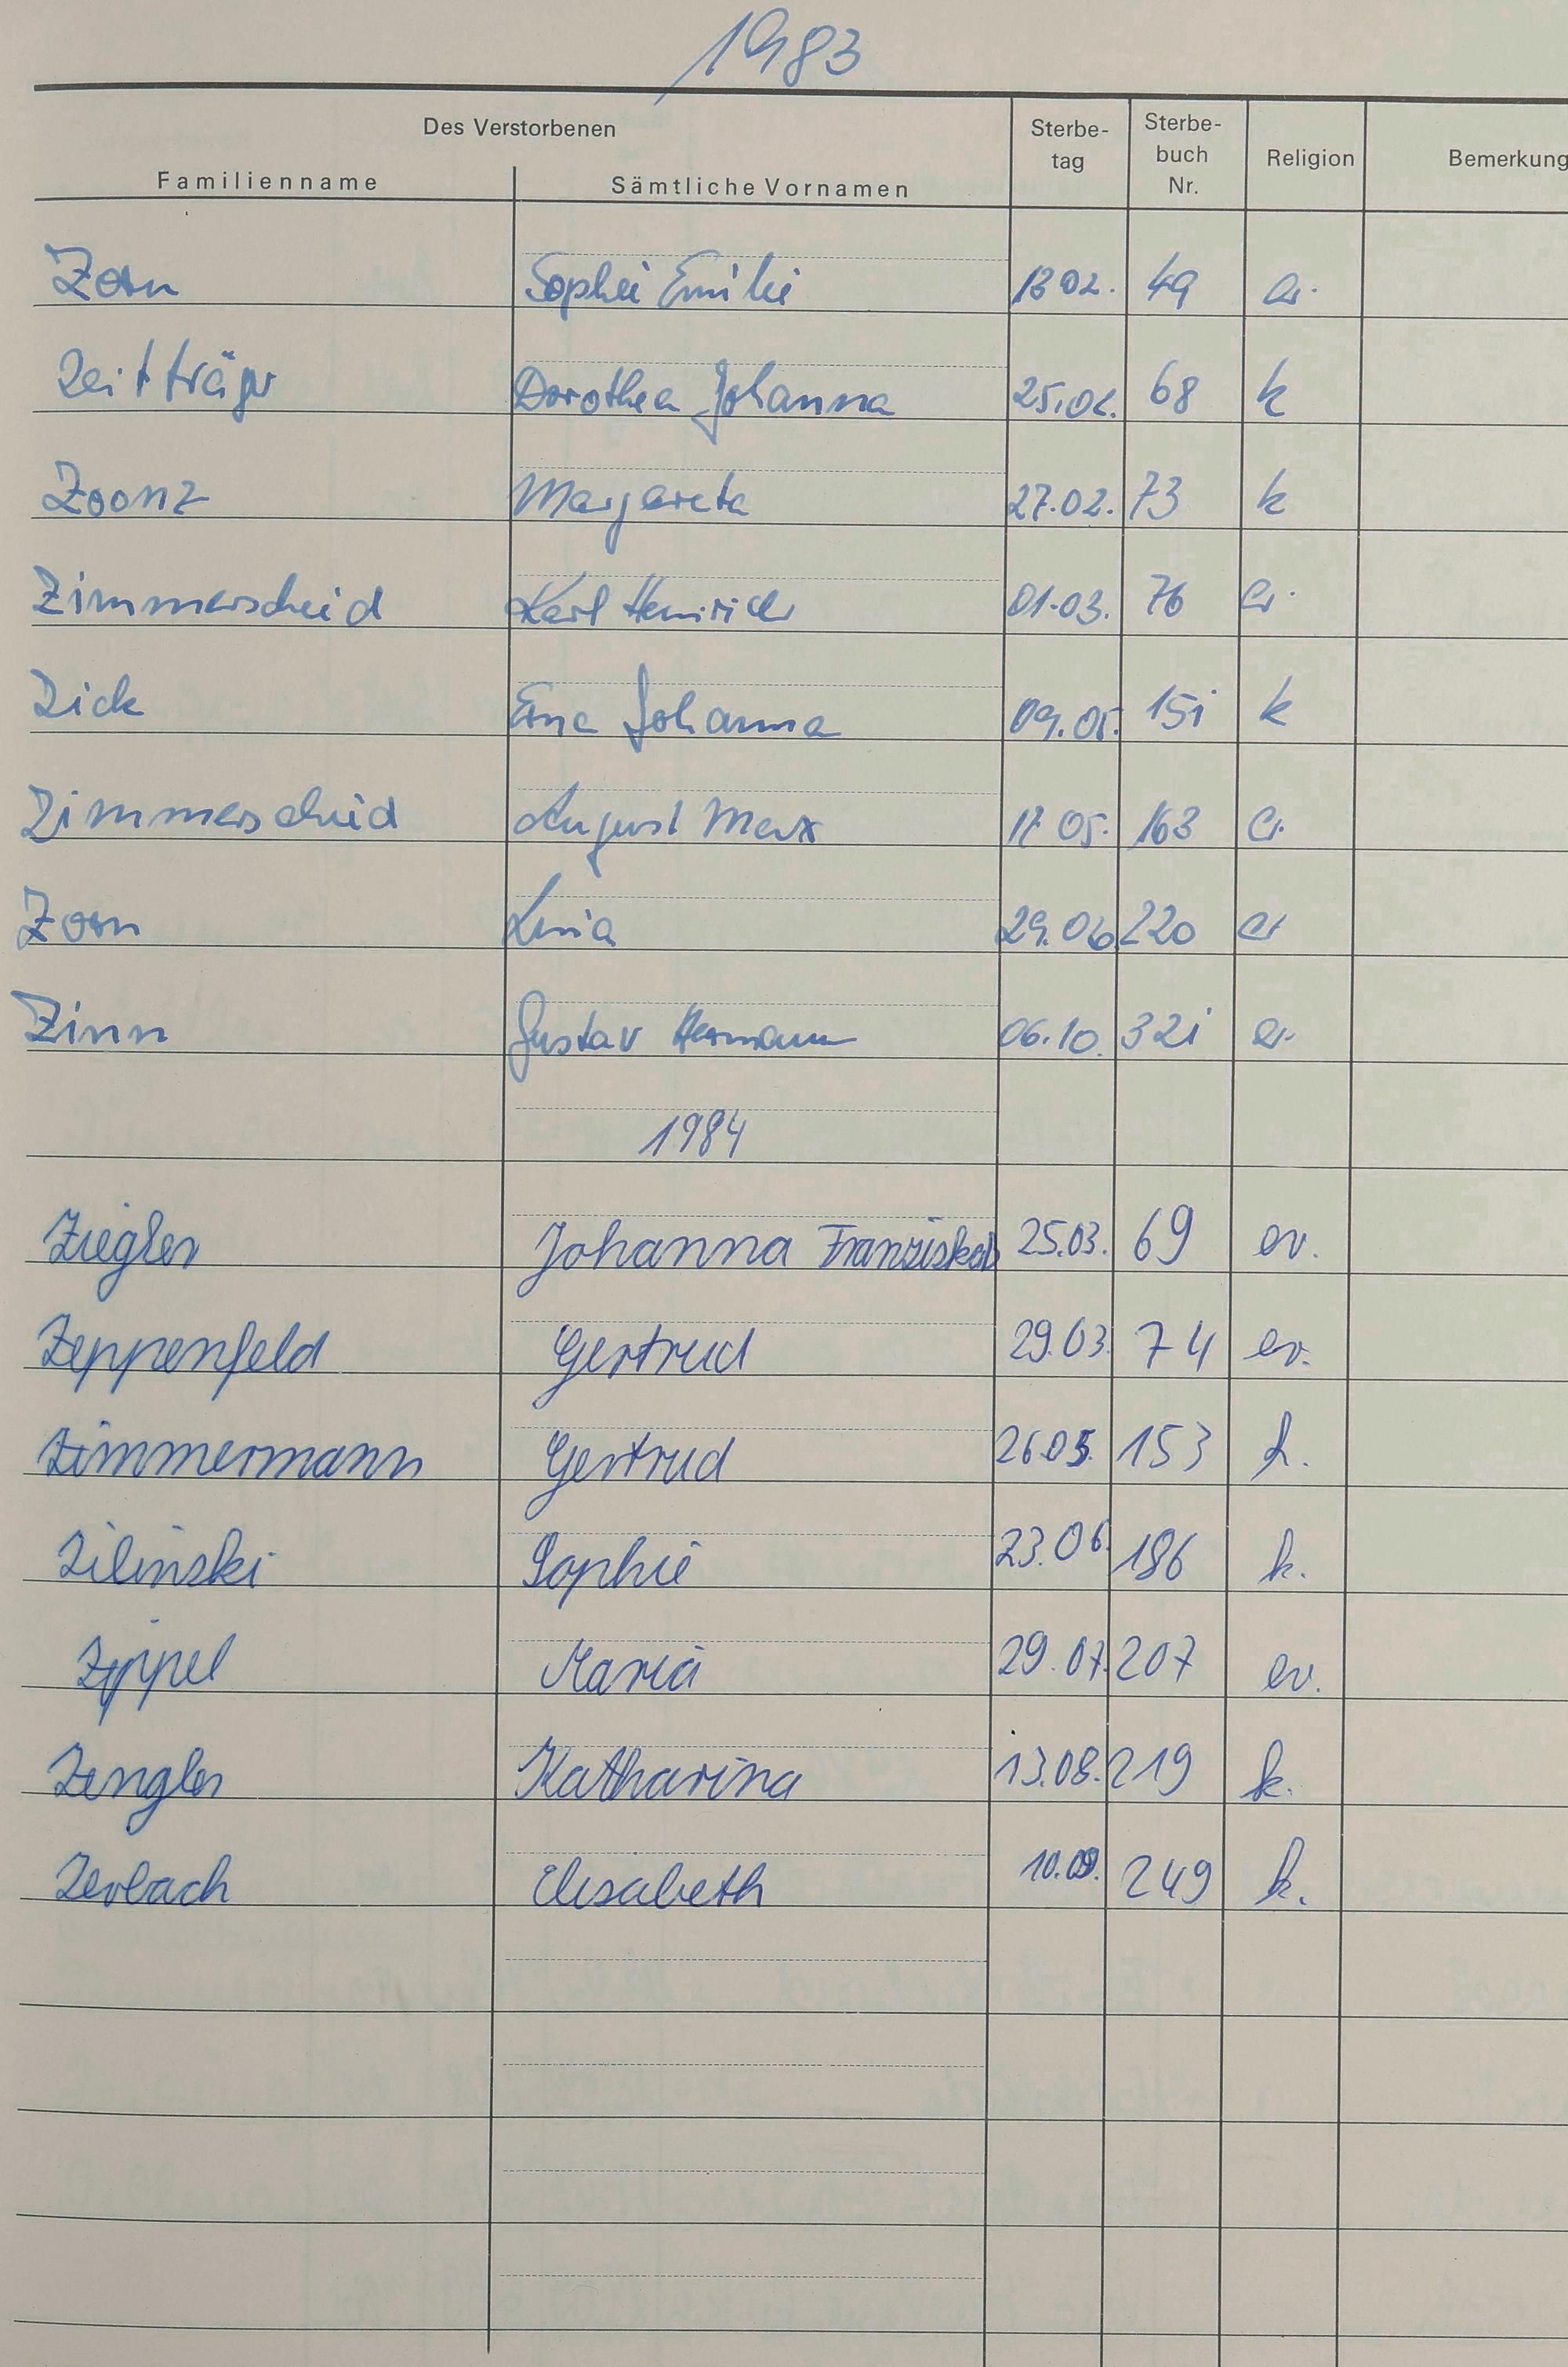 1983
Des Verstorbenen
Familienname Sämtliche Vornamen Sterbe-tag Sterbe-buch Nr. Religion Bemerkung
Zorn Sophie Emilie 13 02. 49 ev.
Zeitträger Dorothea Johanna 25.02. 68 k
Zoonz Margareta 27.02. 73 k
Zimmerscheid Karl Heinrich 01.03. 76 ev.
Zick Erna Johanna 09.05. 151 k
Zimmerscheid August Max 17 05. 163 ev.
Zorn Lina 29.06 220 ev
Zinn Gustav Hermann 06.10. 321 ev.
1984
Ziegler Johanna Franziska 25.03. 69 ev.
Zeppenfeld Gertrud 29.03. 74 ev.
Zimmermann Gertrud 26.05. 153 k.
Zilinski Sophie 23.06. 186 k.
Zippel Maria 29.07. 207 ev.
Zengler Katharina 13.08. 219 k.
Zerbach Elisabeth 10.09. 249 k.